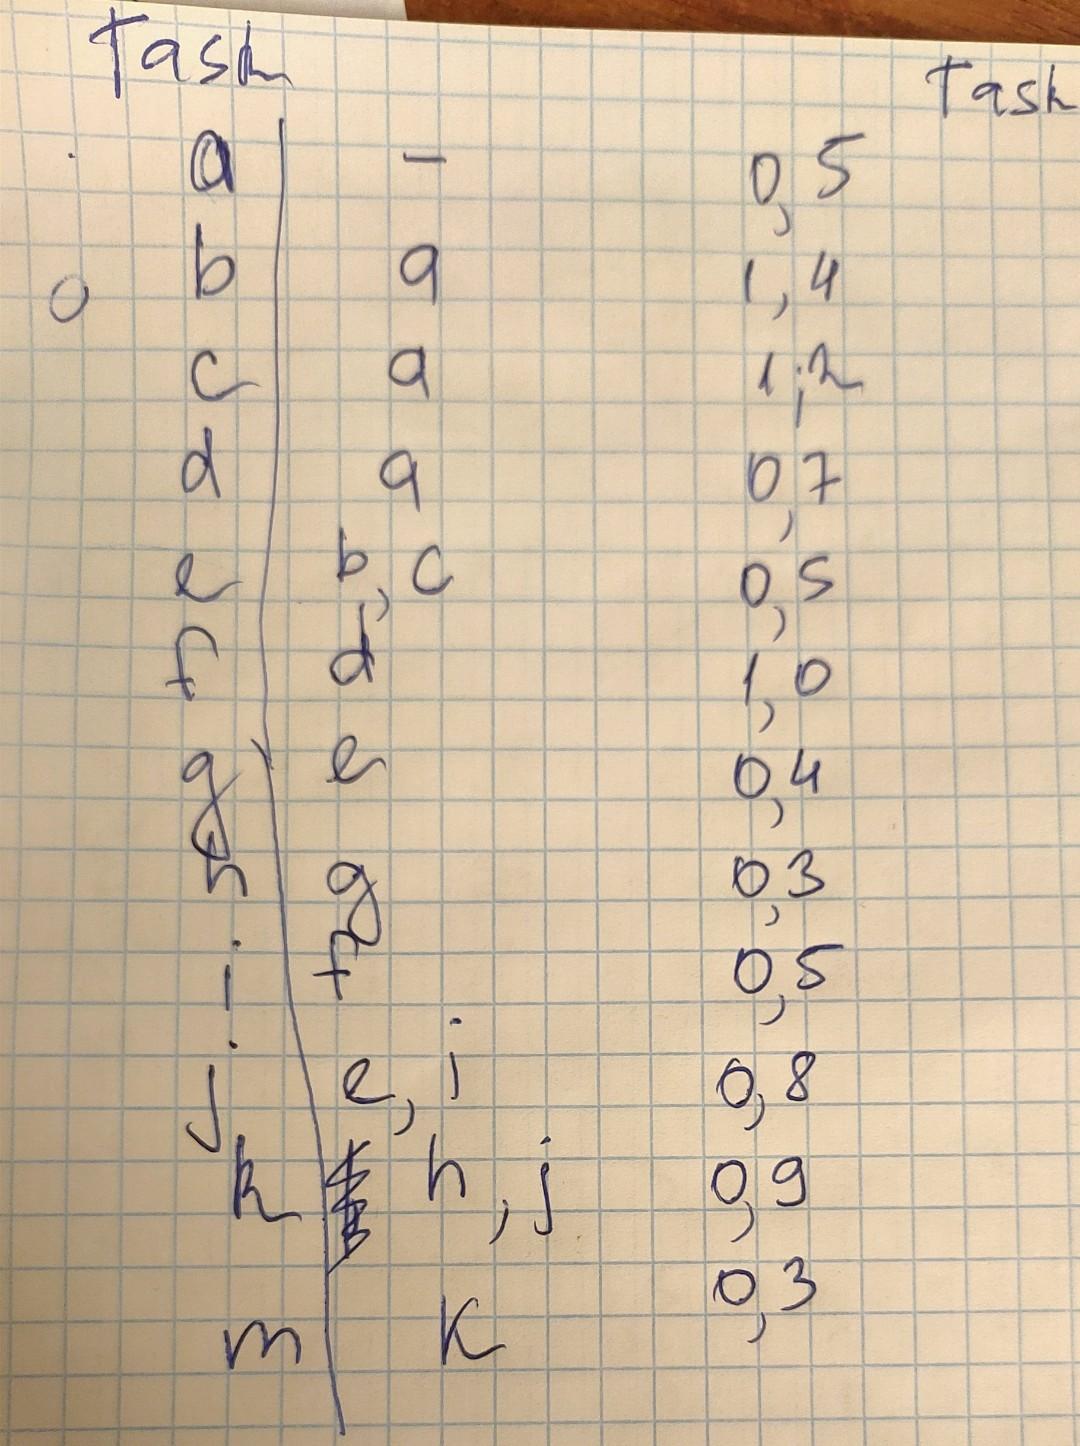 Task Task
a - 0,5
b a 1,4
c a 1,2
d a 0,7
e b, c 0,5
f d 1,0
g e 0,4
h g 0,3
i f 0,5
j e, i 0,8
k h, j 0,9
m k 0,3